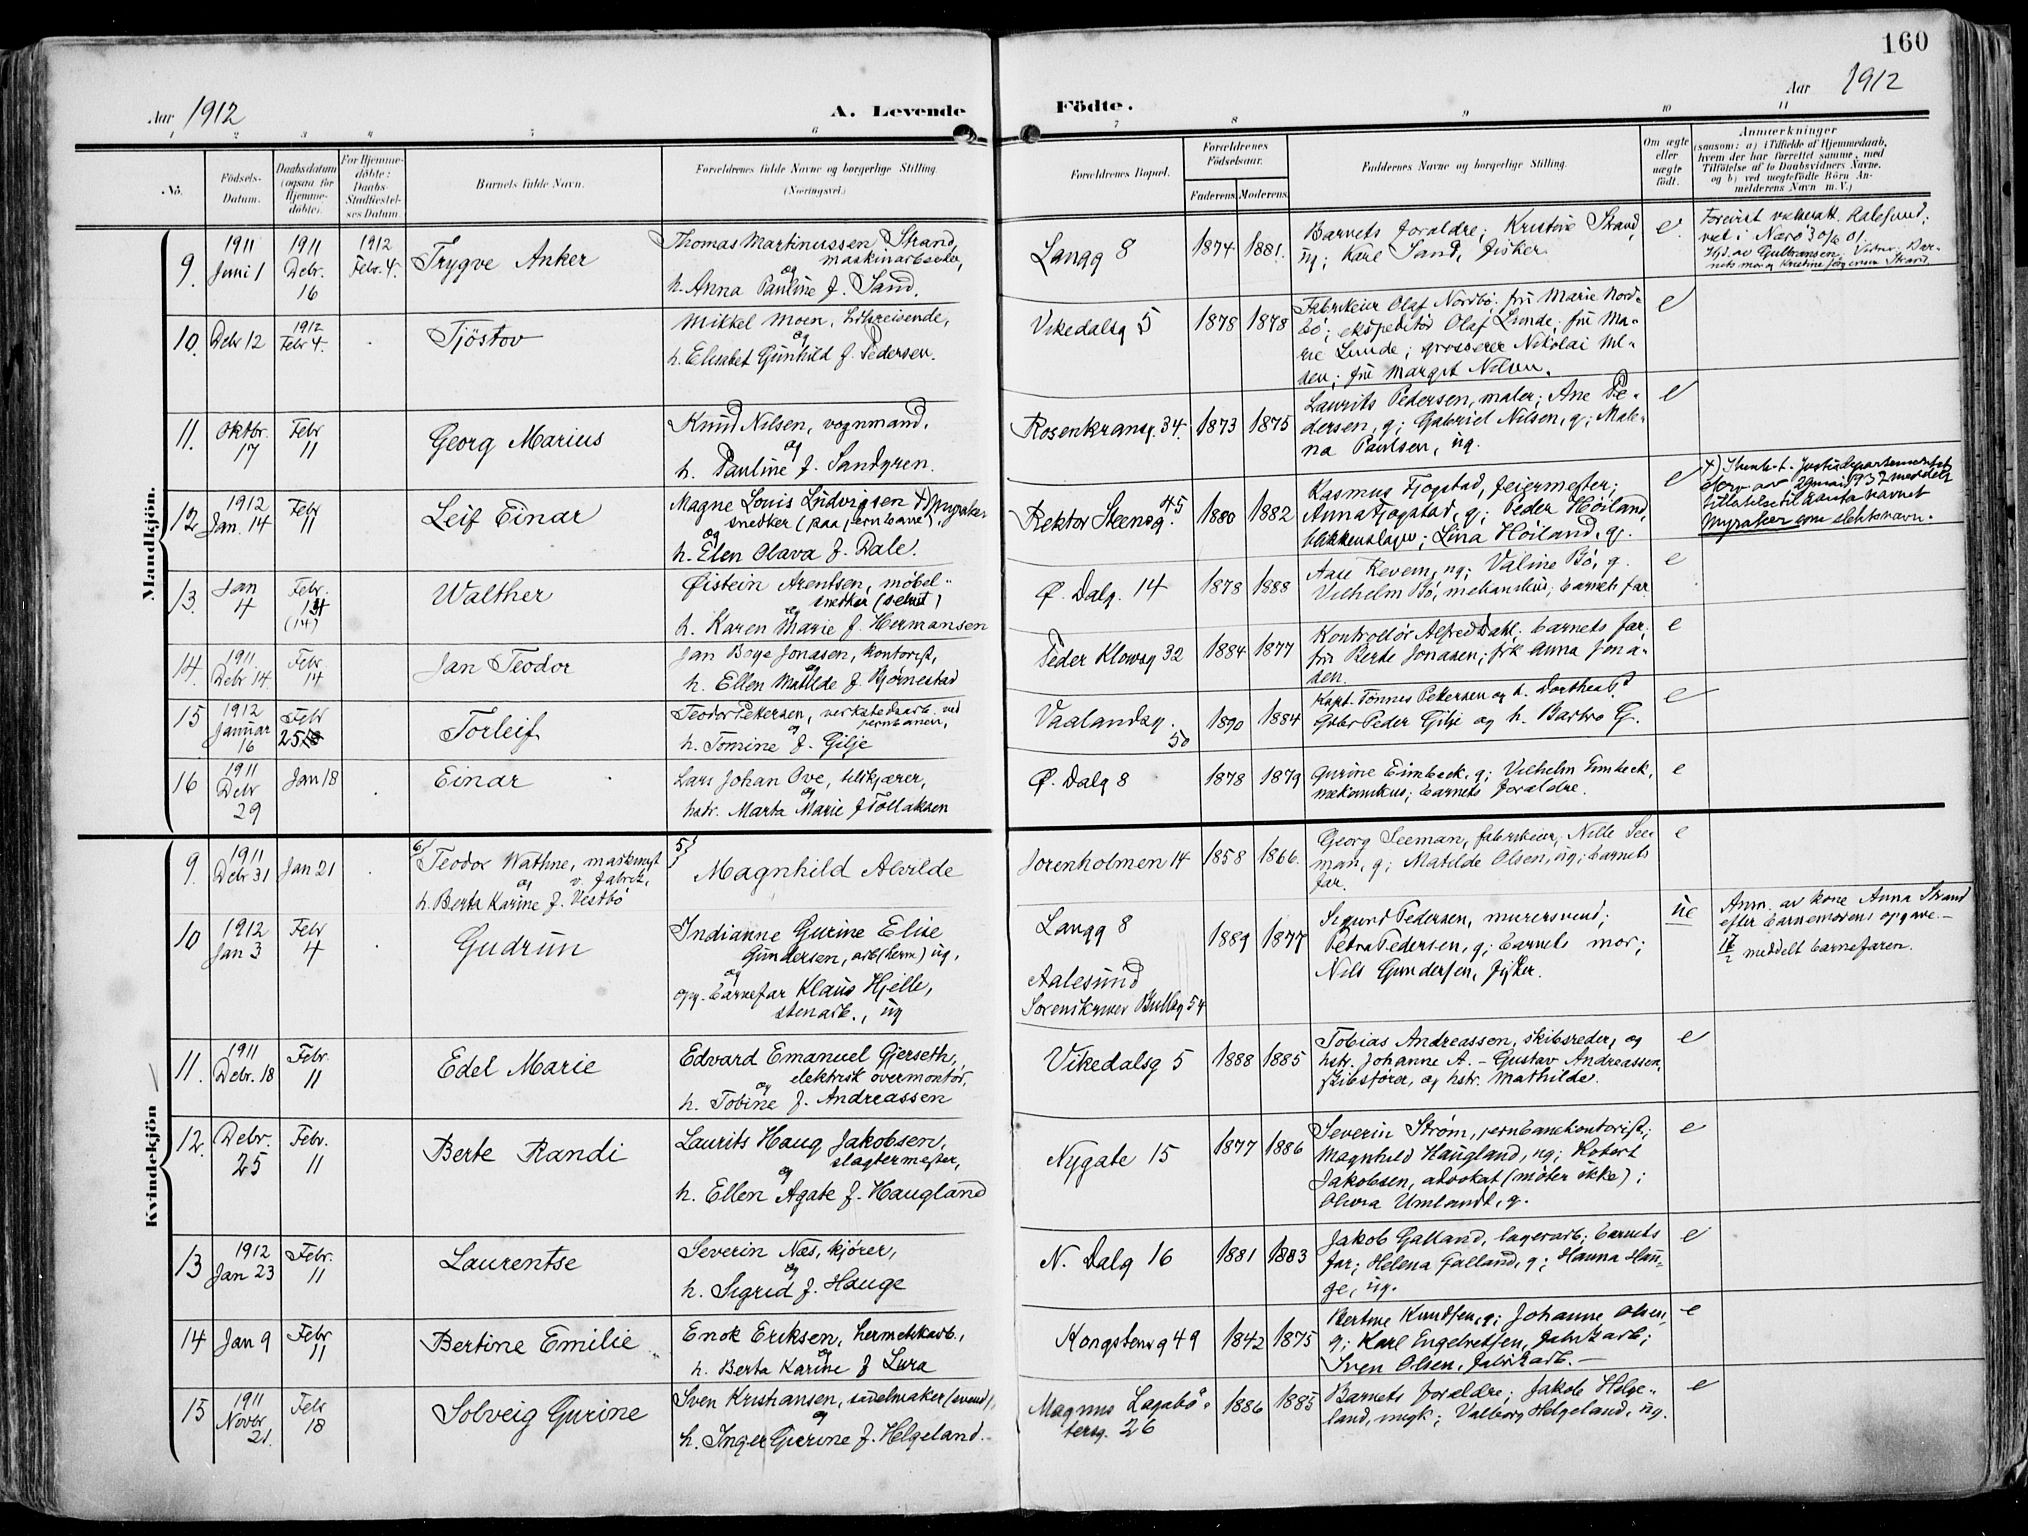 160
Aar 1912
A. Levende
Födte.
Aar 1912
1 2 3 4 5 6 7 8 9 10 11
No.
Födsels-
Datum.
Daabsdatum
(ogsaa for
Hjemme-
döbte).
For Hjemme-
döbte:
Daabs-
Stadfæstel-
ses Datum
Barnets fulde Navn.
Forældrenes fulde Navne og borgerlige Stilling
(Næringsvei.)
Forældrenes Bopæl.
Forældrenes
Födselsaar.
Faderens
Moderens
Faddernes Navne og borgerlige Stilling.
Om ægte
eller
uægte
født.
Anmærkninger
(saasom: a) i Tilfælde af Hjemmedaab,
hvem der har forrettet samme, med
Tilföielse af to Daabsvidners Navne,
og b) ved uægtefödte Börn An-
melderens Navn m. V.)
Mandkjön.
9.
1911
Juni 1
1911
Debr.
16
1912
Febr. 4.
Trygve Anker
Thomas Martinussen Strand,
maskinarbeider,
og
h. Anna Pauline f. Sand.
Langg 8
1874 1881.
Barnets forældre; Kristine Strand,
ug; Kare Sand, fisker
e
10.
Debr 12
1912
Febr 4.
Tjöstov
Mikkel Moen, handelsreisende,
og
h. Elisabet Gunhild f. Pedersen.
Vikedalsg 5
1878 1878
Fabrikeier Olaf Nordbö; fru Marie Nord-
bö; ekspeditör Olaf Lunde; fru Ma-
rie Lunde; grosserer Nikolai Nil-
sen; fru Margit Nilsen.
e
11.
Oktbr.
17
Febr
11
Georg Marius
Knud Nilsen, vognmand,
og
h. Pauline f. Sandgren.
Rosenkransg. 34.
1873 1875
Laurits Pedersen, maler; Ane Pe-
dersen, g; Gabriel Nilsen, g; Male-
na Paulsen, ug.
e
12.
1912
Jan. 14
Febr
11
Leif Einar
Magne Louis Ludvigsen +) Myraker
snedker (paa jernbane)
og
h. Elen Olava f. Dale.
Rektor Steensg. 45
1880 1882
Rasmus Fjogstad, feiermester;
Anna Fjogstad, g; Peder Höiland,
blikkenslager; Lina Höiland, g.
e
+) Ifr. Justisdepartementet
skrv av 29 mai 1937 meddelt
tillatelse til å anta navnet
Myraker som slektsnavn.
13.
Jan
4
Febr.
14
(14)
Walther
Øistein Arentsen, møbel-
snedker (selvst)
og
h. Karen Marie f. Hermansen
Ø. Dalg. 14
1878 1888
Aase Revem, ug; Valine Bö, g.
Vilhelm Bö, mekanikus; barnets far
e
14.
1911
Debr 14.
Febr.
14
Jan Teodor
Jan Boye Jonasen, kontorist,
og
h. Ellen Matilde f. Bjørnestad
Peder Klowsg 32
1884 1877
Kontrollör Alfred Dahl; barnets far;
fru Berte Jonasen; frk Anna Jona-
sen.
e
15
1912
Januar
16
Febr
25
Torleif
Teodor Pettersen, verkstedsarb. ved
jernbanen,
h. Tomine f. Gilje
Vaalandsg.
50
1890 1884
Kapt. Tönnes Pettersen og h. Dorthea P.
Gbr Peder Gilje og h. Bartro G.
e
16
1911
Debr
29
Jan 18
Einar
Lars Johan Ove, bilkjører,
og
hstr. Marta Marie f. Tollaksen
Ø. Dalg 8
1878 1879
Gurine Eimbeck, g; Vilhelm Eimbeck,
mekanikus; barnets forældre.
e
Kvindekjön
9.
1911
Debr 31
Jan 21
6)
Teodor Wathne, maskinist
og v. fabrik,
h. Berta Karine f. Vestbö
5)
Magnhild Alvilde
Jorenholmen 14
1858 1866.
Georg Seeman, fabrikeier; Nille See-
man, g; Matilde Olsen, ug; barnets
far.
e
10
1912
Jan 3
Febr
4
Gudrun
Indianne Gurine Elise
Gundersen, arb (herm) ug,
og
opg. barnefar Klaus Hjelle,
stenarb., ug
Langg 8
Aalesund
Sorenskriver Bullsg 54
1889 1877
Sigurd Pedersen, murersvend;
Petra Pedersen, g; barnets mor;
Nils Gundersen, fisker.
ue
Anm. av kone Anna Strand
efter barnemorens opgave. —
17/2 meddelt barnefaren.
11.
1911
Debr. 18
Febr.
11
Edel Marie
Edvard Emanuel Gjerseth,
elektrisk overmontör,
og
h. Tobine f. Andreassen
Vikedalsg 5
1888 1885
Tobias Andreassen, skibsreder, og
hstr. Johanne A. – Gustav Andreassen,
skibsfører, og hstr. Mathilde.
e
12.
Debr.
25
Febr.
11
Berte Randi
Laurits Haug Jakobsen,
slagtermester,
og
h. Ellen Agate f. Haugland
Nygate 15
1877 1886
Severin Strøm, jernbanekontorist;
Magnhild Haugland, ug; Robert
Jakobsen, advokat (møter ikke);
Olivia Umlandt, g.
e
13
1912
Jan 23
Febr.
11
Laurentse
Severin Næs, kjører,
og
h. Sigrid f. Hauge
N. Dalg 16
1881 1883
Jakob Galland, lagerarb; barnets
far; Helena Galland, g; Hanna Hau-
ge, ug.
e
14
Jan 9
Febr
11
Bertine Emilie
Enok Eriksen, hermetikarb.,
og
h. Berta Karine f Lura
Kongstensg 49
1842 1875
Bertine Knudsen, g; Johanne Olsen,
g; Karl Engelretsen, fabrikarb;
Sven Olsen, fabrikarb. —
e
15
1911
Novbr.
21.
Febr
18
Solveig Gurine
Sven Kristiansen, sadelmaker (svend),
og
h. Inger Gurine f. Helgeland.
Magnus Lagabö-
tersg. 26
1886 1885
Barnets forældre; Jakob Helge-
land, ungk; Valborg Helgeland, ug.
e